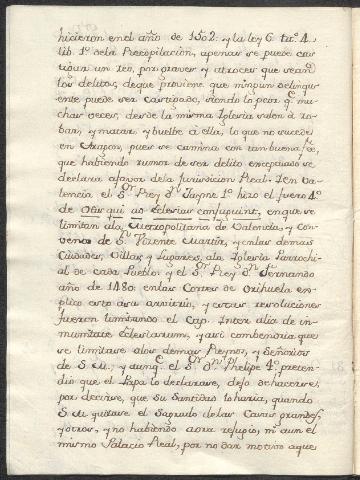 hicieron en el año de 1502. y la ley 6 tit.º 4.
lib. 1.º de la Recopilacion, apenas se puede cas
tigar un reo, por graves y atroces que sean
los delitos, de que proviene que ningun delinqu
ente puede ser castigado, siendo lo peor q.e mu
chas veces, desde la misma Iglesia salen à ro-
bar, y matar, y buelbe à ella, lo que no sucede
en Aragon, pues se camina con tan buena fee,
que habiendo rumor de ser delito exceptuado se
declara a favor de la Jurisdicion Real. I en Va-
lencia el S.or Rey d.n Jayme 1.º hizo el fuero 4.º
de Os qui ad Eclesias confugiunt, en que se
limitan ala Metropolitana de Valencia, y con-
vento de S.n Vicente Martir, y en las demas
Ciudades, Villas, y Lugares, ala Iglesia Parrochi-
al de cada Pueblo y el S.or Rey d.n Fernando
año de 1480. en las Cortes de Orihuela en-
plico esto à su arvitrio, y otras resoluciones
fueron limitando el Cap. Inter alia de in-
munitate Eclesiarum, y asi combendria que
se limitase alos demas Reynos, y Señorios
de S. M., y aunq.e el S.or d.n Phelipe 4.º preten-
diò que el Papa lo declarase, dejo de hacerse,
por decirse, que su Santidad lo haria, quando
S. M. quitase el Sagrado delas Casas grandes,
y otros, y no habiendo aora refugio, ni aun el
mismo Palacio Real, por no dar motivo aque